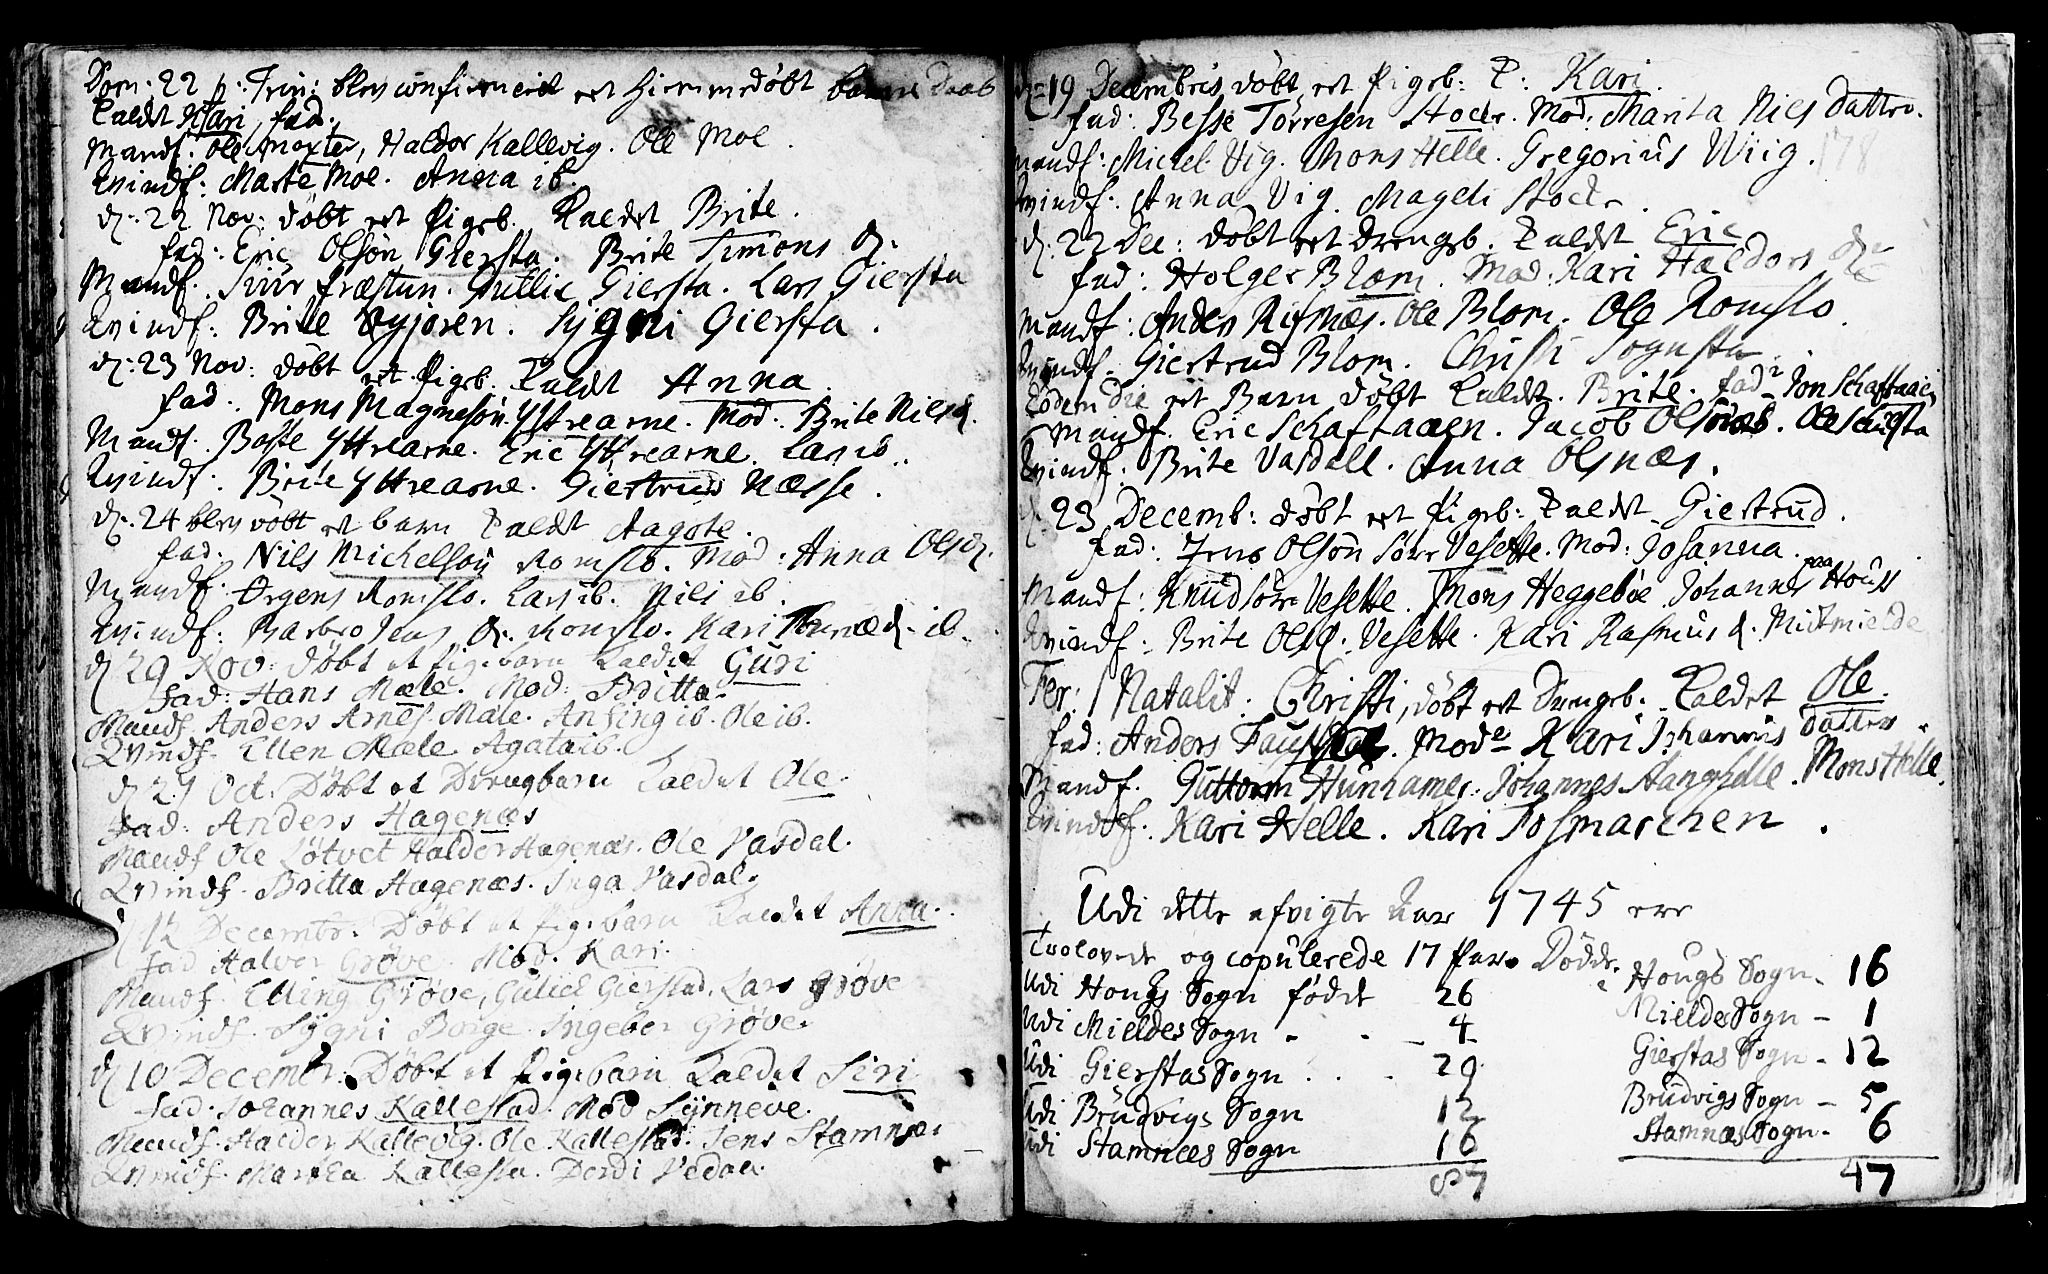 Dom: 22 p: Trin: blev confirmeret et hiemmedøbt barns Daab
kaldet Kari, fad.
Mandf: Ole Moxter, Haldor Kallevig. Ole Moe.
Qvindf: Marte Moe. Anna ib.
d: 22 Nov: døbt et Pigeb. kaldet Brite.
fad: Eric Olsøn Giersta. Brite Simons d.
Mandf. Siur Præstun. Gullic Giersta. Lars Giersta
Qvindf: Brite Øyjoren. Sygni Giersta.
d: 23 Nov: døbt et Pigeb. kaldet Anna.
fad: Mons Magnesøn Yttrearne. Mod: Brite Nilsd.
Mandf: Baste Yttrearne. Eric Yttrearne. Lars ib.
Qvindf: Brite Yttrearne. Giertrud Næsse.
d: 24 blev døbt et barn kaldt Aagote.
fad. Nils Michelsøn Romslo. Mod: Anna Olsd.
Mandf. Ørgens Romslo. Lars ib. Nils ib.
Qvindf: Barbro Jens d. Romslo. Kari d. ib.
d 29 Nov: døbt et Pigebarn kaldet Guri
fad: Hans Mæle. Mod: Britta.
Mandf Anders Arnes. Mæle. Ansing ib. Ole ib.
Qvindf. Ellen Mæle Agata ib.
d 29 Oct. Døbt et Drengbarn kaldet Ole.
fad: Anders Hagenæs
Mandf Ole Løtvet Haldor Hagenæs. Ole Vasdal.
Qvindf. Britta Hagenæs. Inga Vasdal.
d 12 Decembr. Døbt et Pigebarn kaldet Anna.
fad Halvor Grøve. Mod. Kari.
Mandf. Elling Grøve, Gulich Gierstad. Lars Grøve
Qvindf. Sygni Borge Ingebor Grøve.
d 10 Decembr. Døbt et Pigebarn kaldet Siri
fad. Johannes Kallestad. Mod Synneve.
Mandf. Halder Kallevig. Ole Kallestad. Jens Stamnæs
Qvindf. Martha Kallesta. Dordi Vedaa.
d: 19 Decembris døbt et Pigeb: k: Kari.
fad: Besse Torresen Stocke. Mod: Marita Nils datter.
Mandf: Michel Vig. Mons Helle. Gregorius Wiig. 178
Qvindf: Anna Vig. Mageli Stocke.
d. 22 Dec: døbt et Drengeb. kaldet Eric
fad: Holger Blom. Mod: Kari Haldors d.
Mandf: Anders Rifnæs. Ole Blom. Ole Romslo.
Qvindf. Giertrud Blom. Christi Sognsta.
Eodem die et Barn døbt kaldt. Brite. fad: Jon Schaftaaen
Mandf. Eric Schaftaaen. Jacob Olsnæs. Ole
Qvindf: Brite Vasdall. Anna Olsnæs.
d 23 Decemb: døbt et Pigeb: kaldet Giertrud.
fad: Jens Olsøn Søre Vesette. Mod: Josanna.
Mandf: Knud Søre Vesette. Mons Heggebøe. Johannes paa Houss
Qvindf: Brite Olsd. Vesette. Kari Rasmus d. Midtmielde
Fer: 1 Natalit: Christi, døbt et Drengeb. kaldet Ole.
fad: Anders Mod: Kari Johannis datter.
Mandf. Guttorm Hunhamer. Johannes Stanghelle. Mons Helle
Qvindf. Kari Helle. Kari Fosmarchen.
Udi dette afvigte Aar 1745 ere
Troelovede og copulerede 17 Par. Døde. Hougs Sogn. 16
Udi Hougs Sogn fødde 26 Mielde Sogn - 1
Udi Mieldes Sogn - - 4 Gierstas Sogn - 12
Udi Gierstas Sogn . . . 29 Brudvigs Sogn - 5
Udi Brudvigs Sogn 12 Stamnæs Sogn. 6
Udi Stamnæs Sogn 16 47
87